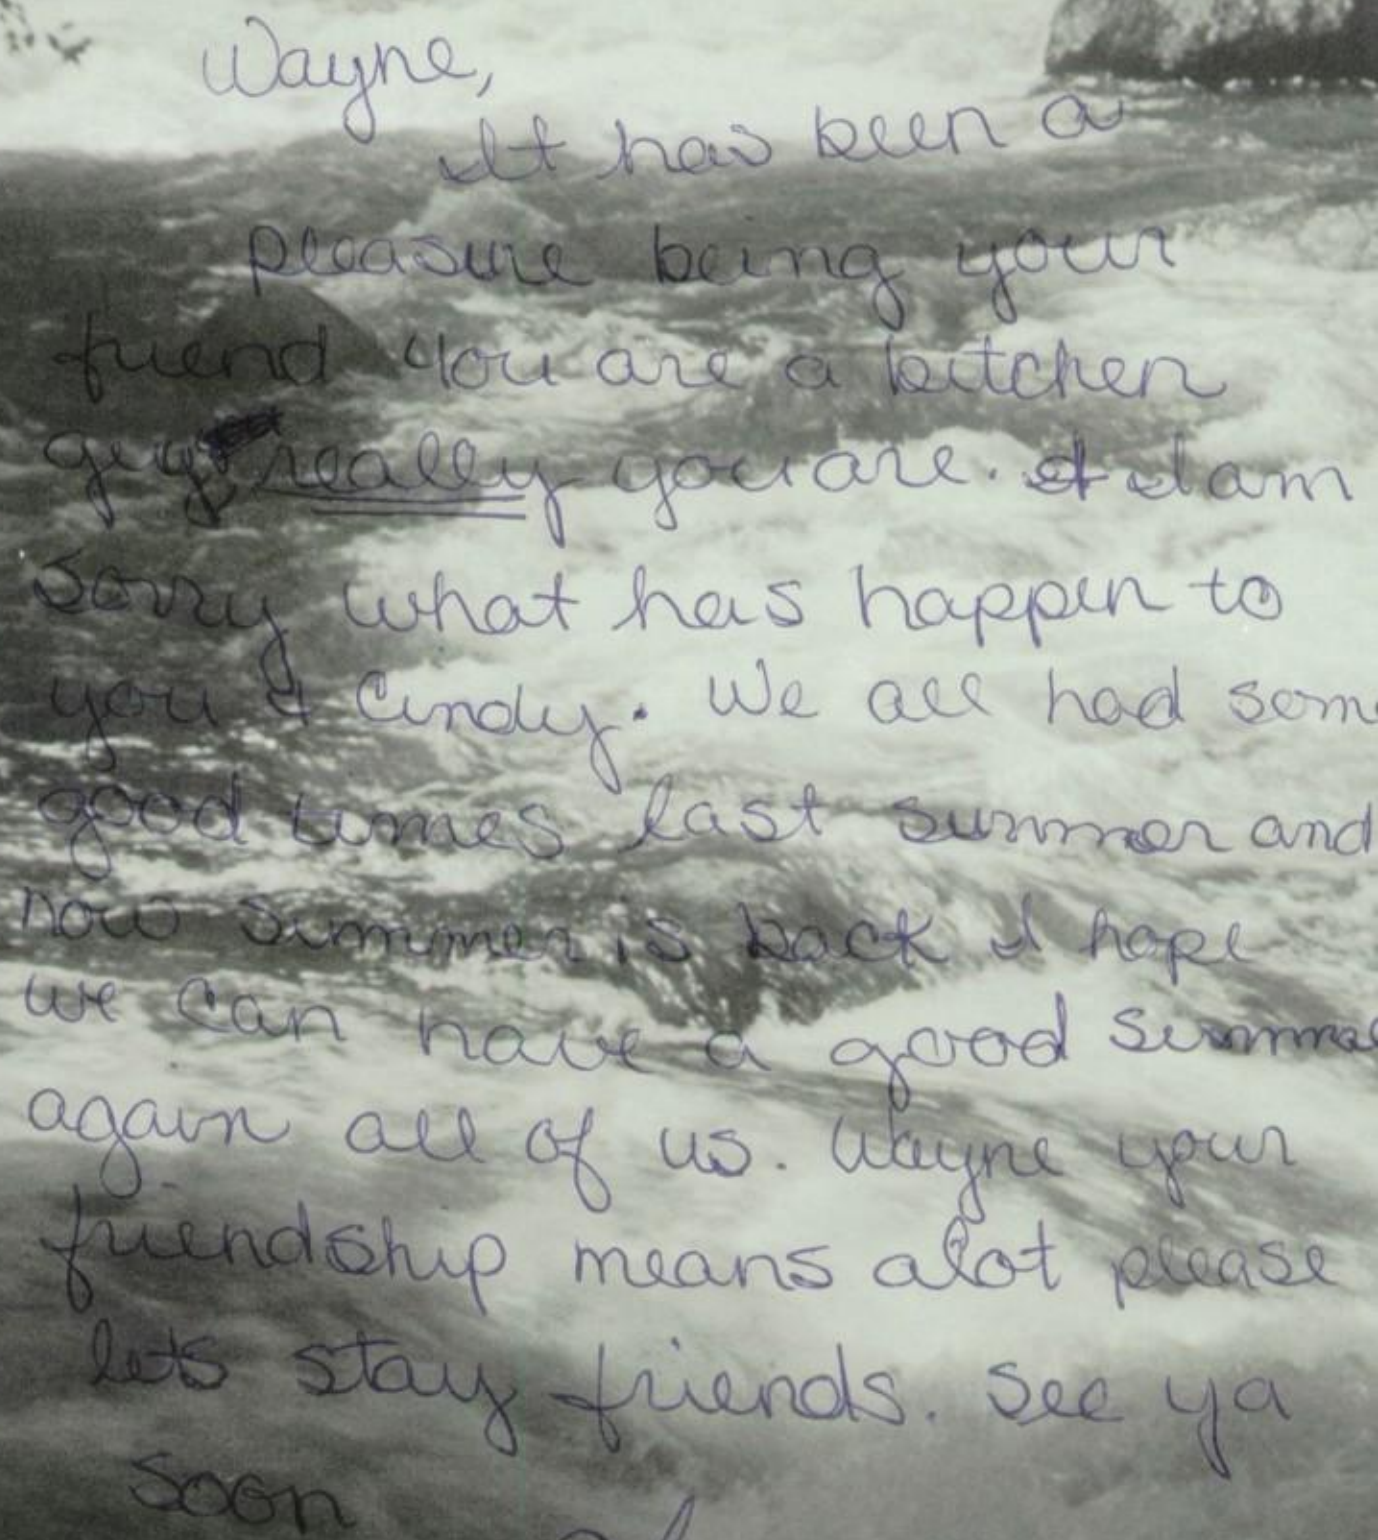 Wayne,
It has been a
pleasure being your
friend You are a bitchen
guy really you are. I am
sorry what has happen to
you & Cindy. We all had som
good times last summer and
now summer is back I hope
we can have a good summe
again all of us. Wayne your
friendship means alot please
lets stay friends. See ya
soon